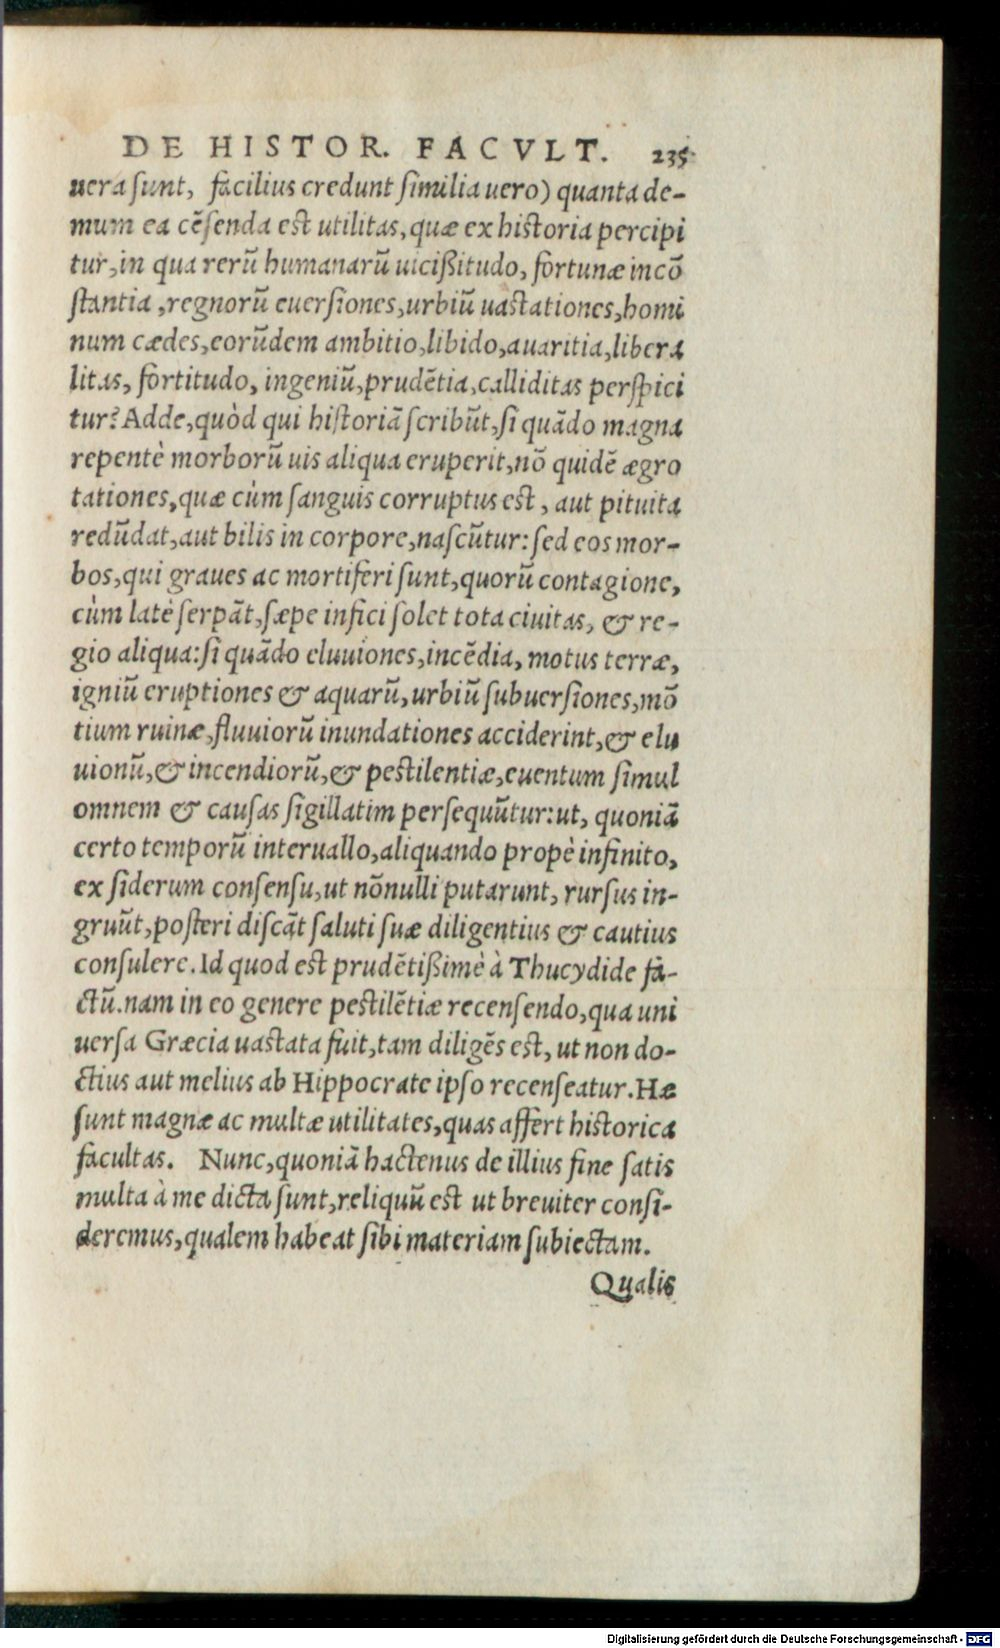 DE HISTOR. FACVLT. 235
uera sunt, facilius credunt similia uero) quanta de-
mum ea cẽsenda est utilitas, quæ ex historia percipi
tur, in qua rerũ humanarũ uicißitudo, fortunæ incõ
stantia, regnorũ euersiones, urbiũ uastationes, homi
num cædes, eorũdem ambitio, libido, auaritia, libera
litas, fortitudo, ingeniũ, prudẽtia, calliditas perspici
tur? Adde, quòd qui historiã scribũt, si quãdo magna
repentè morborũ uis aliqua eruperit, nõ quidẽ ægro
tationes, quæ cùm sanguis corruptus est, aut pituita
redũdat, aut bilis in corpore, nascũtur: sed eos mor-
bos, qui graues ac mortiferi sunt, quorũ contagione,
cùm latè serpãt, sæpe infici solet tota ciuitas, & re-
gio aliqua: si quãdo eluuiones, incẽdia, motus terræ,
igniũ eruptiones & aquarũ, urbiũ subuersiones, mõ
tium ruinæ, fluuiorũ inundationes acciderint, & elu
uionũ, & incendiorũ, & pestilentiæ, euentum simul
omnem & causas sigillatim persequũtur: ut, quoniã
certo temporũ interuallo, aliquando propè infinito,
ex siderum consensu, ut nõnulli putarunt, rursus in-
gruũt, posteri discãt saluti suæ diligentius & cautius
consulere. Id quod est prudẽtißimè à Thucydide fa-
ctũ. nam in eo genere pestilẽtiæ recensendo, qua uni
uersa Græcia uastata fuit, tam diligẽs est, ut non do-
ctius aut melius ab Hippocrate ipso recenseatur. Hæ
sunt magnæ ac multæ utilitates, quas affert historica
facultas. Nunc, quoniã hactenus de illius fine satis
multa à me dicta sunt, reliquũ est ut breuiter consi-
deremus, qualem habeat sibi materiam subiectam.
Qualis
Digitalisierung gefördert durch die Deutsche Forschungsgemeinschaft - DFG